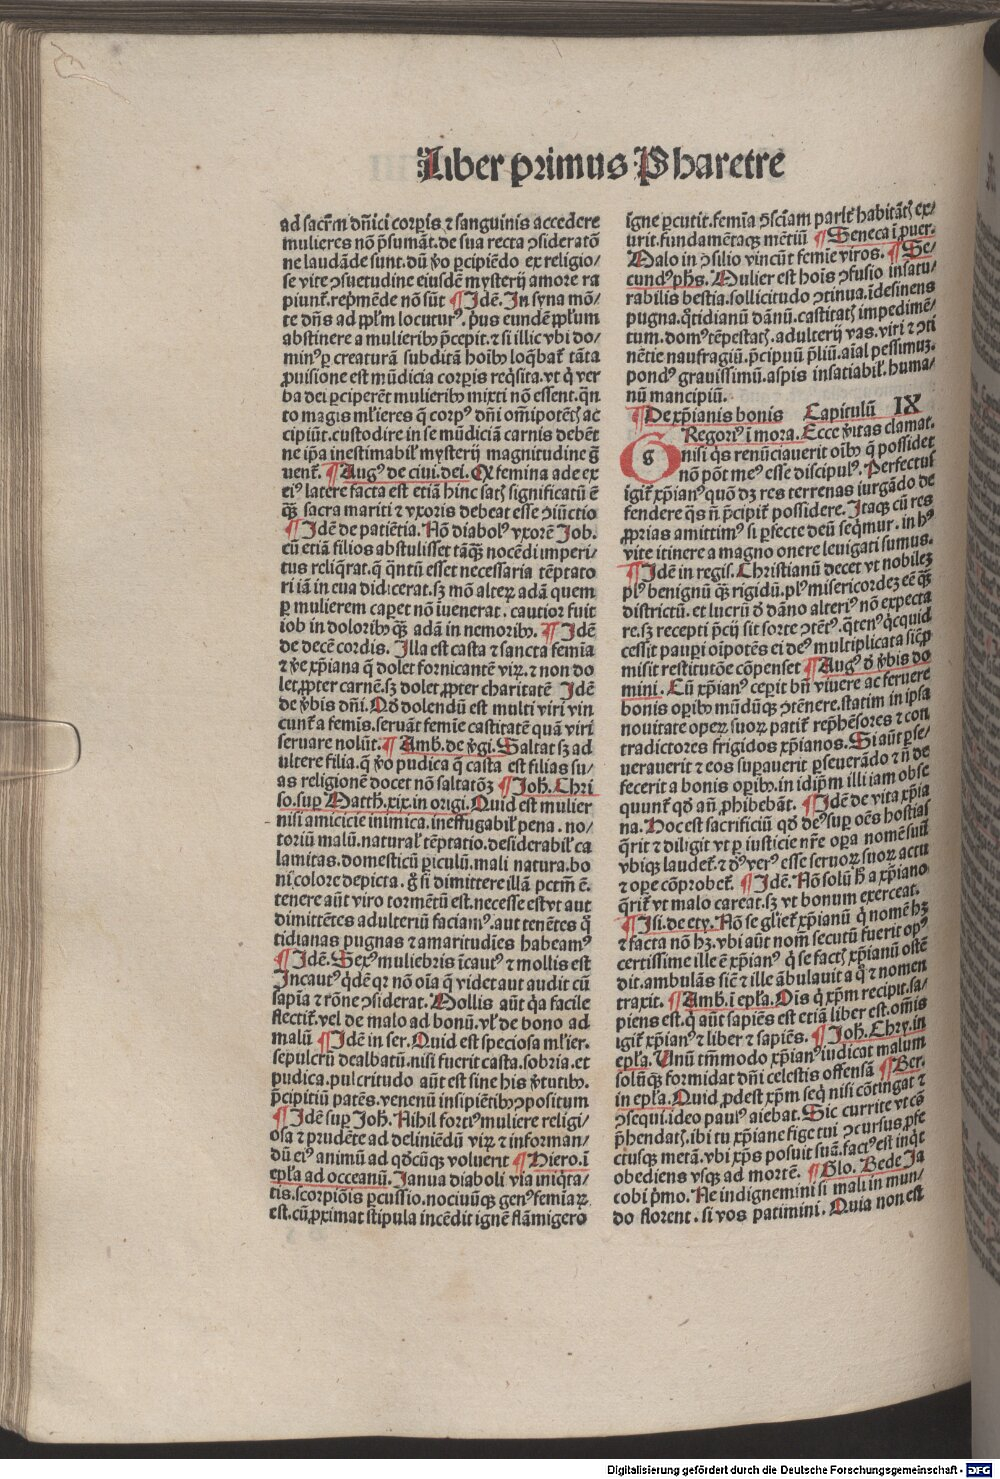 Liber primus Pharetre
ad sacr̄m dn̄ici corp̄is ⁊ sanguinis accedere
mulieres nō p̄sumāt. de sua recta ꝯsideratō
ne laudāde sunt. dū ꝟo ꝑcipiēdo ex religio/
se vite ꝯsuetudine eiusdē mysterij amore ra
piunt᷑. rep̄mēde nō sūt ¶ Idē. In syna mō/
te dn̄s ad ppl̄m locuturꝰ. pꝰus eundē ppl̄um
abstinere a mulieribꝰ p̄cepit. ⁊ si illic vbi do/
minꝰ ꝑ creaturā subditā hoībꝰ loq̄bat᷑ tāta
ꝓuisione est mūdicia corꝑis req̄sita. vt q̇ ver
ba dei ꝑciperēt mulieribꝰ mixti nō essent. q̄n
to magis ml̄ieres q̄ corpꝰ dn̄i om̄ipotētꝭ ac
cipiūt. custodire in se mūdiciā carnis debēt
ne ip̄a inestimabil᷑ mysterij magnitudine g̃
vent᷑. ¶ Augꝰ de ciui. dei. Ꝙ femina ade ex
eiꝰ latere facta est etiā hinc satꝭ significatū ē
qꝙ̄ sacra mariti ⁊ vxoris debeat esse ꝯiūctio
¶ Idē de patiētia. Nō diabolꝰ vxorē Job.
cū etiā filios abstulisset tāqꝙ̄ nocēdi imperi/
tus reliq̄rat. q̄ q̄ntū esset necessaria tēptato
ri iā in eua didicerat. sꝫ mō alteꝝ adā quem
ꝑ mulierem caꝑet nō īuenerat. cautior fuit
iob in doloribꝰ qꝙ̄ adā in nemoribꝰ. ¶ Idē
de decē cordis. Illa est casta ⁊ sancta femīa
⁊ ꝟe xp̄iana q̄ dolet fornicantē viꝝ. ⁊ non do
let ꝓpter carnē. sꝫ dolet ꝓpter charitatē Idē
de ꝟbis dn̄i. Qđ dolendū est multi viri vin
cunt᷑ a femīs. seruāt femīe castitatē quā viri
seruare nolūt. ¶ Amb. de ꝟgi. Saltat sꝫ ad
ultere filia. q̄ ꝟo pudica q̄ casta est filias su/
as religionē docet nō saltatōꝫ ¶ Joh̄. Chri
so. suꝑ Matth̄. xix. in origi. Quid est mulier
nisi amicicie inimica. ineffugabil᷑ pena. no/
toriū malū. natural᷑ tēptatio. desiderabil᷑ ca
lamitas. domesticū ꝑiculū. mali natura. bo
ni colore depicta. g̊ si dimittere illā pctm̄ ē.
tenere aūt viro tormētū est. necesse est vt aut
dimittētes adulteriū faciamꝰ. aut tenētes q̊
tidianas pugnas ⁊ amaritudīes habeamꝰ
¶ Idē. Sexꝰ muliebris īcautꝰ ⁊ mollis est
Incautꝰ q̇dē qꝛ nō oīa q̄ videt aut audit cū
sapīa ⁊ rōne ꝯsiderat. Mollis aūt q̇a facile
flectit᷑. vel de malo ad bonū. vl᷑ de bono ad
malū ¶ Idē in ser. Quid est speciosa ml̄ier.
sepulcrū dealbatū. nisi fuerit casta. sobria. et
pudica. pulcritudo aūt est sine his ꝟtutibꝰ.
p̄cipitiū patēs. venenū insipiētibꝰ ꝯpositum
¶ Idē suꝑ Joh̄. Nihil fortiꝰ muliere religi/
osa ⁊ prudēte ad deliniēdū viꝝ ⁊ informan/
dū eiꝰ animū ad qđcūqꝫ voluerit ¶ Hiero. ī
epl̄a ad occeanū. Ianua diaboli via iniq̇ta/
tis. scorpiōis ꝑcussio. nociuūqꝫ genꝰ femiaꝝ
est. cū ꝓximat stipula incēdit ignē flāmigero
igne ꝑcutit. femīa ꝯsciam parit᷑ habitātꝭ ex/
urit. fundamētaqꝫ mētiū ¶ Seneca ī ꝓuer.
Malo in ꝯsilio vincūt femīe viros. ¶ Se/
cundꝰ ph̄s. Mulier est hoīs ꝯfusio insatu/
rabilis bestia. sollicitudo ꝯtinua. īdesinens
pugna. q̊tidianū dānū. castitatꝭ impedimē/
tum. domꝰ tēpestatꝭ. adulterij vas. viri ⁊ ꝯti
nētie naufragiū. p̄cipuū p̄liū. aīal pessimuꝫ.
pondꝰ grauissimū. aspis insatiabil᷑. huma/
nū mancipiū.
¶ De xp̄ianis bonis Capitulū IX
Regoriꝰ ī mora. Ecce ꝟitas clamat.
nisi q̇s renūciauerit oībꝰ q̄ possidet
nō pōt meꝰ esse discipulꝰ. Perfectus
igit᷑ xp̄ianꝰ quō dꝫ res terrenas iurgādo de
fendere q̄s n̄ p̄cipit᷑ possidere. Itaqꝫ cū res
ꝓprias amittimꝰ si ꝑfecte deū seq̇mur. in hꝰ
vite itinere a magno onere leuigati sumus.
¶ Idē in regis. Christianū decet vt nobileꝫ
plꝰ benignū qꝙ̄ rigidū. plꝰ misericordeꝫ eē qꝙ̄
districtū. et lucrū đ dāno alteriꝰ nō expecta
re. sꝫ recepti p̄cij sit sorte ꝯtētꝰ. q̄tenꝰ q̇cquid
cessit pauꝑi oīpotēs ei deꝰ multiplicata sic̄ p̄
misit restitutōe cōpenset ¶ Augꝰ đ ꝟbis do
mini. Cū xp̄ianꝰ ceꝑit bn̄ viuere ac feruere
bonis oꝑibꝰ mūdūqꝫ ꝯtēnere. statim in ipsa
nouitate opeꝝ suoꝝ patit᷑ reph̄ēsores ⁊ con
tradictores frigidos xp̄ianos. Si aūt ꝑse/
uerauerit ⁊ eos suꝑauerit ꝑseuerādo ⁊ n̄ de
fecerit a bonis oꝑibꝰ. in idip̄m illi iam obse
quunt᷑ qđ an̄ ꝓhibebāt. ¶ Idē de vita xp̄ia
na. Hoc est sacrificiū qđ deꝰ suꝑ oēs hostias
q̄rit ⁊ diligit vt ꝑ iusticie nr̄e oꝑa nomē suū
vbiqꝫ laudet᷑. ⁊ đꝰ verꝰ esse seruoꝝ suoꝝ actu
⁊ ope cōprobet᷑. ¶ Idē. Nō solū h̄ a xp̄iano
q̄rit᷑ vt malo careat. sꝫ vt bonum exerceat.
¶ Isi. de ety. Nō se gl̄iet᷑ xp̄ianū q̇ nomē hꝫ
⁊ facta nō hꝫ. vbi aūt nom̄ secutū fuerit opꝰ
certissime ille ē xp̄ianꝰ q̇ se factꝭ xp̄ianū ostē
dit. ambulās sic̄ ⁊ ille ābulauit a q̊ ⁊ nomen
traxit. ¶ Amb. ī epl̄a. Oīs q̇ xp̄m recipit. sa/
piens est. q̇ aūt sapiēs est etiā liber est. om̄is
igit᷑ xp̄ianꝰ ⁊ liber ⁊ sapiēs. ¶ Joh̄. Chry. in
epl̄a. Unū tm̄modo xp̄ianꝰ iudicat malum
solūqꝫ formidat dn̄i celestis offensā ¶ Ber.
in epl̄a. Quid ꝓdest xp̄m seq̇ nisi cōtingat ⁊
ꝯsequi. ideo paulꝰ aiebat. Sic currite vt cō
p̄hendatꝭ. ibi tu xp̄iane fige tui ꝯcursus. ꝓfe
ctusqꝫ metā. vbi xp̄s posuit suā. factꝰ est inq̇t
obediens vsqꝫ ad mortē. ¶ Glo. Bede Ja
cobi p̄mo. Ne indignemini si mali in mun/
do florent. si vos patimini. Quia non est
Digitalisierung gefördert durch die Deutsche Forschungsgemeinschaft - DFG